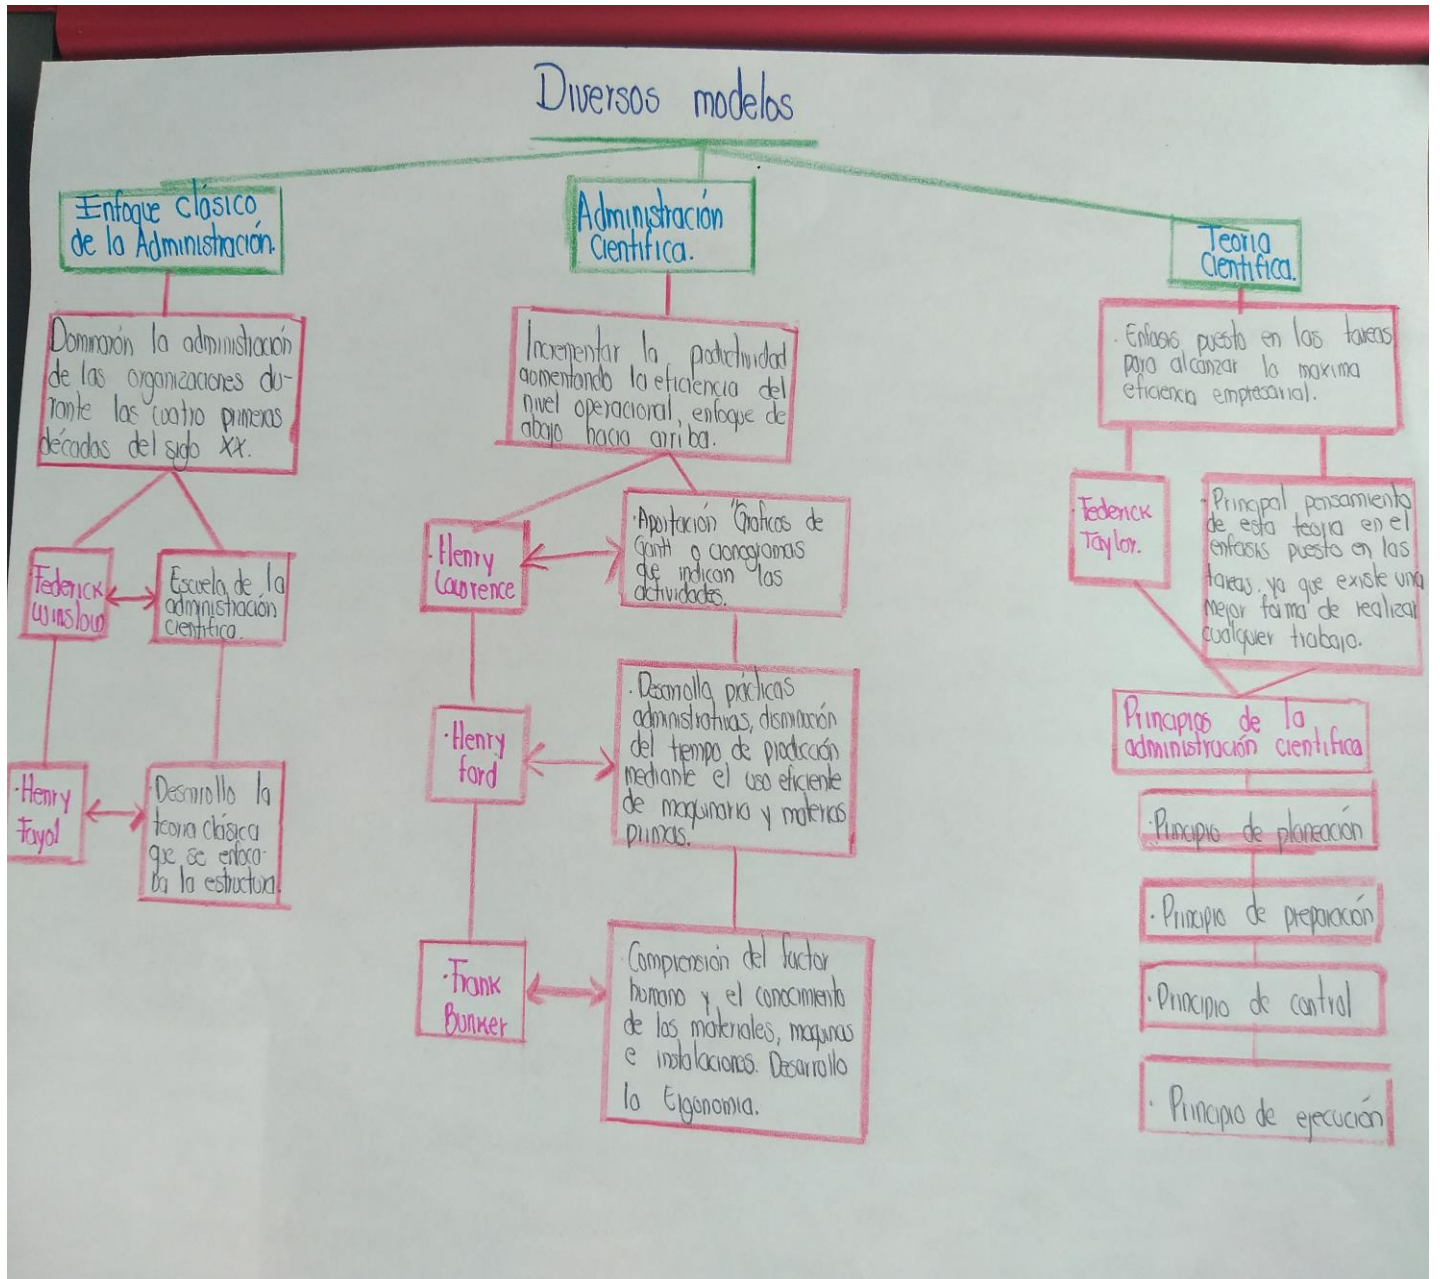 Diversos modelos
Enfoque clásico
de la Administración.
Dominarón la administración
de las organizaciones du-
rante las cuatro primeras
décadas del siglo XX.
Federick
Winslow
Escuela de la
administración
científica.
·Henry
Fayol
·Desarrollo la
teoria clásica
que se enfoca-
ba la estructura.
Administración
Científica.
Incrementar la productividad
aomentando la eficiencia del
nivel operacional, enfoque de
abajo hacia arriba.
·Henry
Lawrence
·Aportación "Graficos de
Gantt o cronogramas
que indican las
actividades.
·Henry
Ford
·Desarrolla prácticas
administrativas, disminución
del tiempo de producción
mediante el uso eficiente
de maquinaria y materias
primas.
·Frank
Bunker
·Comprensión del factor
humano y el conocimiento
de los materiales, maquinas
e instalaciones. Desarrollo
la Ergonomia.
Teoria
Cientifica.
·Enfasis puesto en las tareas
para alcanzar la maxima
eficiencia empresarial.
·Federick
Taylor.
·Principal pensamiento
de esta teoria en el
enfasis puesto en las
tareas, ya que existe una
mejor forma de realizar
cualquier trabajo.
Principios de la
administración cientifica
·Principio de planeación
·Principio de preparación
·Principio de control
·Principio de ejecución